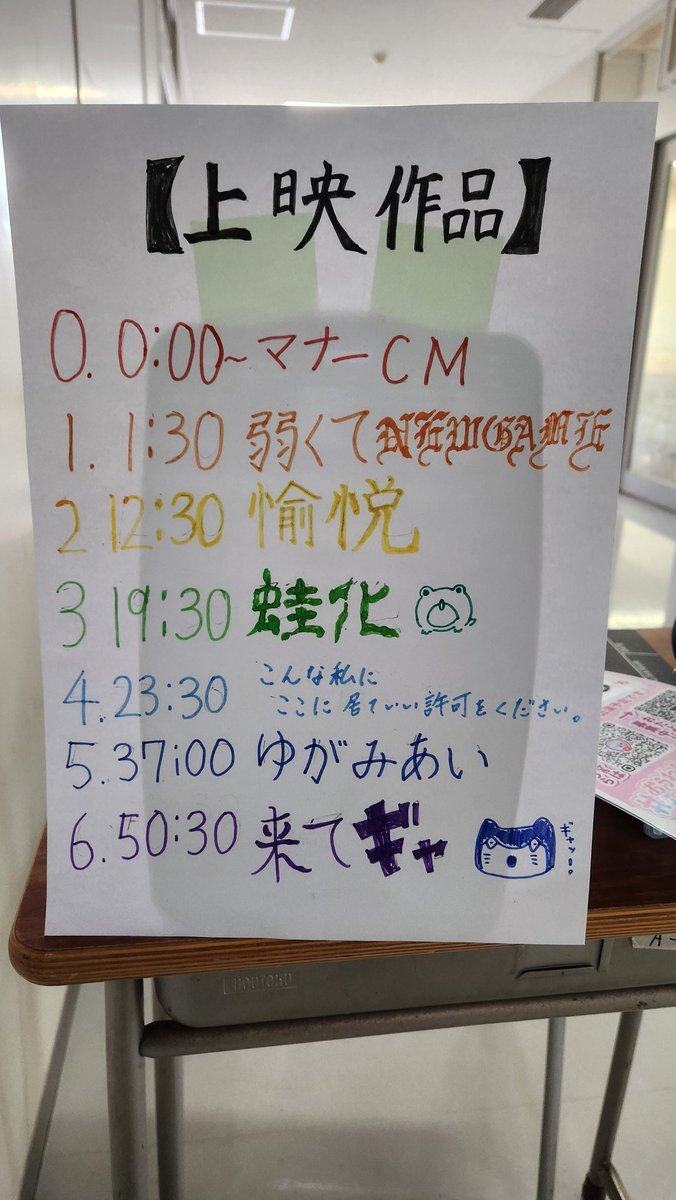 【上映作品】
0. 0:00~マナーCM
1. 1:30 弱くてNEWGAME
2 12:30 愉悦
3 19:30 蛙化
4. 23:30 こんな私に
ここに居ていい許可をください。
5. 37:00 ゆがみあい
6. 50:30 来てギャ